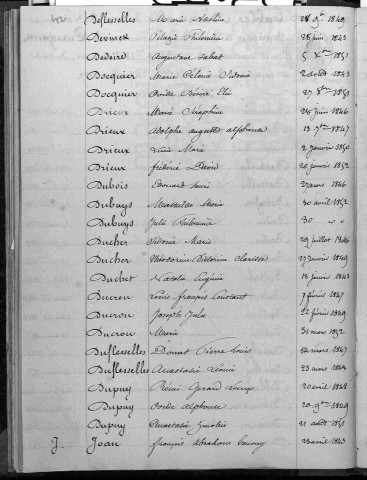 Deflesselles Marie 28 9bre 1849
Devimex Pélagie Philomène 28 juin 1843
Dediére Augustine 5 Xbre 1851
Docquier Marie Sidonie 2 août 1843
Docquier Ovide Elie 27 8bre 1851
Drieux Marie Séraphine 26 juin 1846
Drieux Adolphe auguste alphonse 13 7bre 1847
Drieux Marie 2 Janvier 1850
Drieux frédéric 20 janvier 1852
Dubois Edouard 27 mars 1846
Dubuys Mathilde Marie 30 avril 1852
Dubuys Julie Philomène 30
Ducher Sidonie Marie 29 juillet 1846
Ducher Théodorine Victorine Clarisse 27 Janvier 1849
Duchet Natalie Eugénie 18 janvier 1843
Ducron Louis françois Constant 7 février 1847
Ducron Joseph Jules 22 février 1849
Ducron Marie 31 mars 1852
Duflesselles Donat Pierre Louis 14 mars 1847
Duflesselles Anastasie 23 mars
Dupuy Remi Gérard 20 avril 1848
Dupuy Ovide Alphonse 20 9bre 1849
Dupuy Anastasie 21 août 1851
J. Joan françois Abraham 23 avril 1843